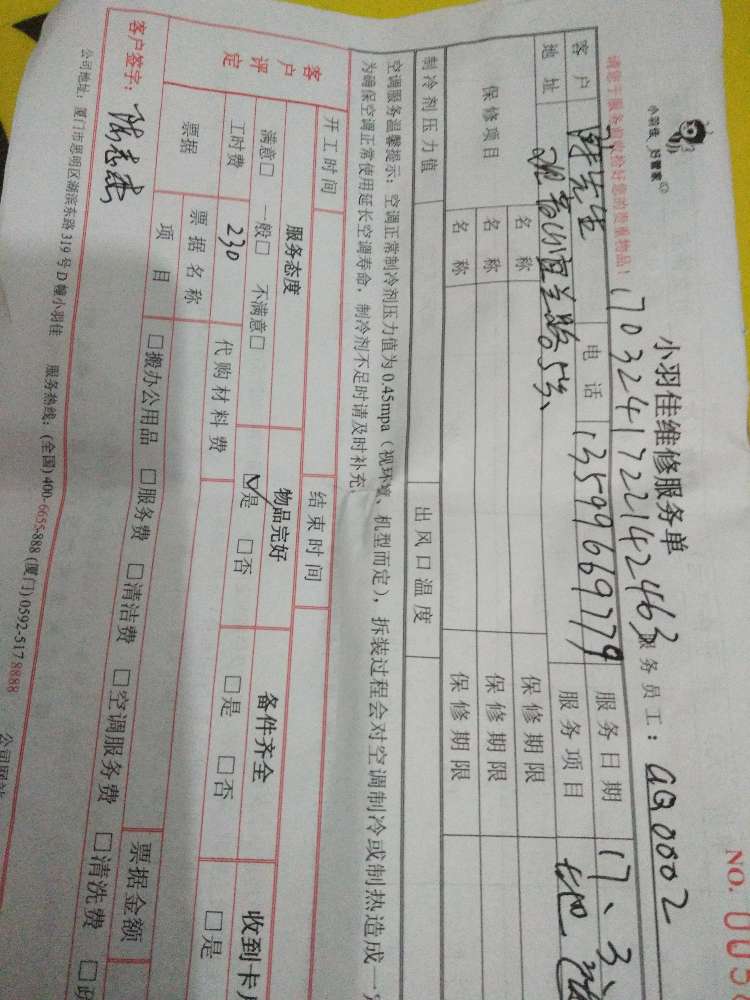 小羽佳 好管家
小羽佳维修服务单
NO. 005
请您于服务前收检好您的贵重物品!
170324172214 2463
服务员工: GQ0002
客户 谢先生 电话 13599669779 服务日期 17、3、
地址 观音山宜兰路5号、 服务项目 地
保修项目 名称 保修期限
名称 保修期限
名称 保修期限
制冷剂压力值 出风口温度
空调服务温馨提示: 空调正常制冷剂压力值为0.45mpa (视环境、机型而定), 拆装过程会对空调制冷或制热造成一定
为确保空调正常使用延长空调寿命, 制冷剂不足时请及时补充。
开工时间 结束时间
客户评定 服务态度 物品完好 备件齐全 收到卡
满意□ 一般□ 不满意□ ☑是 □否 □是 □否 □是
工时费 230 代购材料费
票据 票据名称 票据金额
项目 □搬办公用品 □服务费 □清洁费 □空调服务费 □清洗费 □
客户签字:
公司地址: 厦门市思明区湖滨东路319号D幢小羽佳 服务热线: (全国) 400-6655-888 (厦门) 0592-517 8888 公司网站